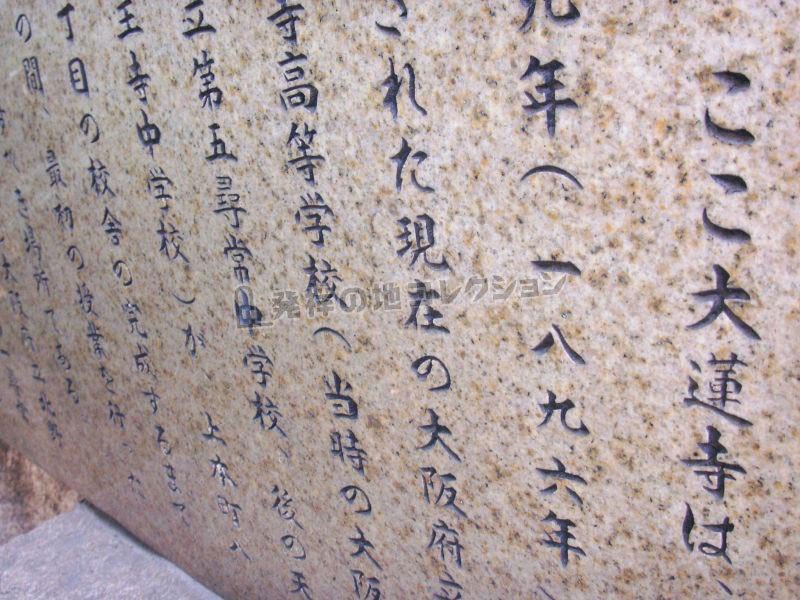 ここ大蓮寺は、
元年(一八九六年
された現在の大阪府立
寺高等学校(当時の大阪
立第五尋常中学校、後の天
王寺中学校)が 上本町八
丁目の校舎の完成するまで
の間、最初の授業を行った
き場所である
大阪府立北野
発祥の地コレクション